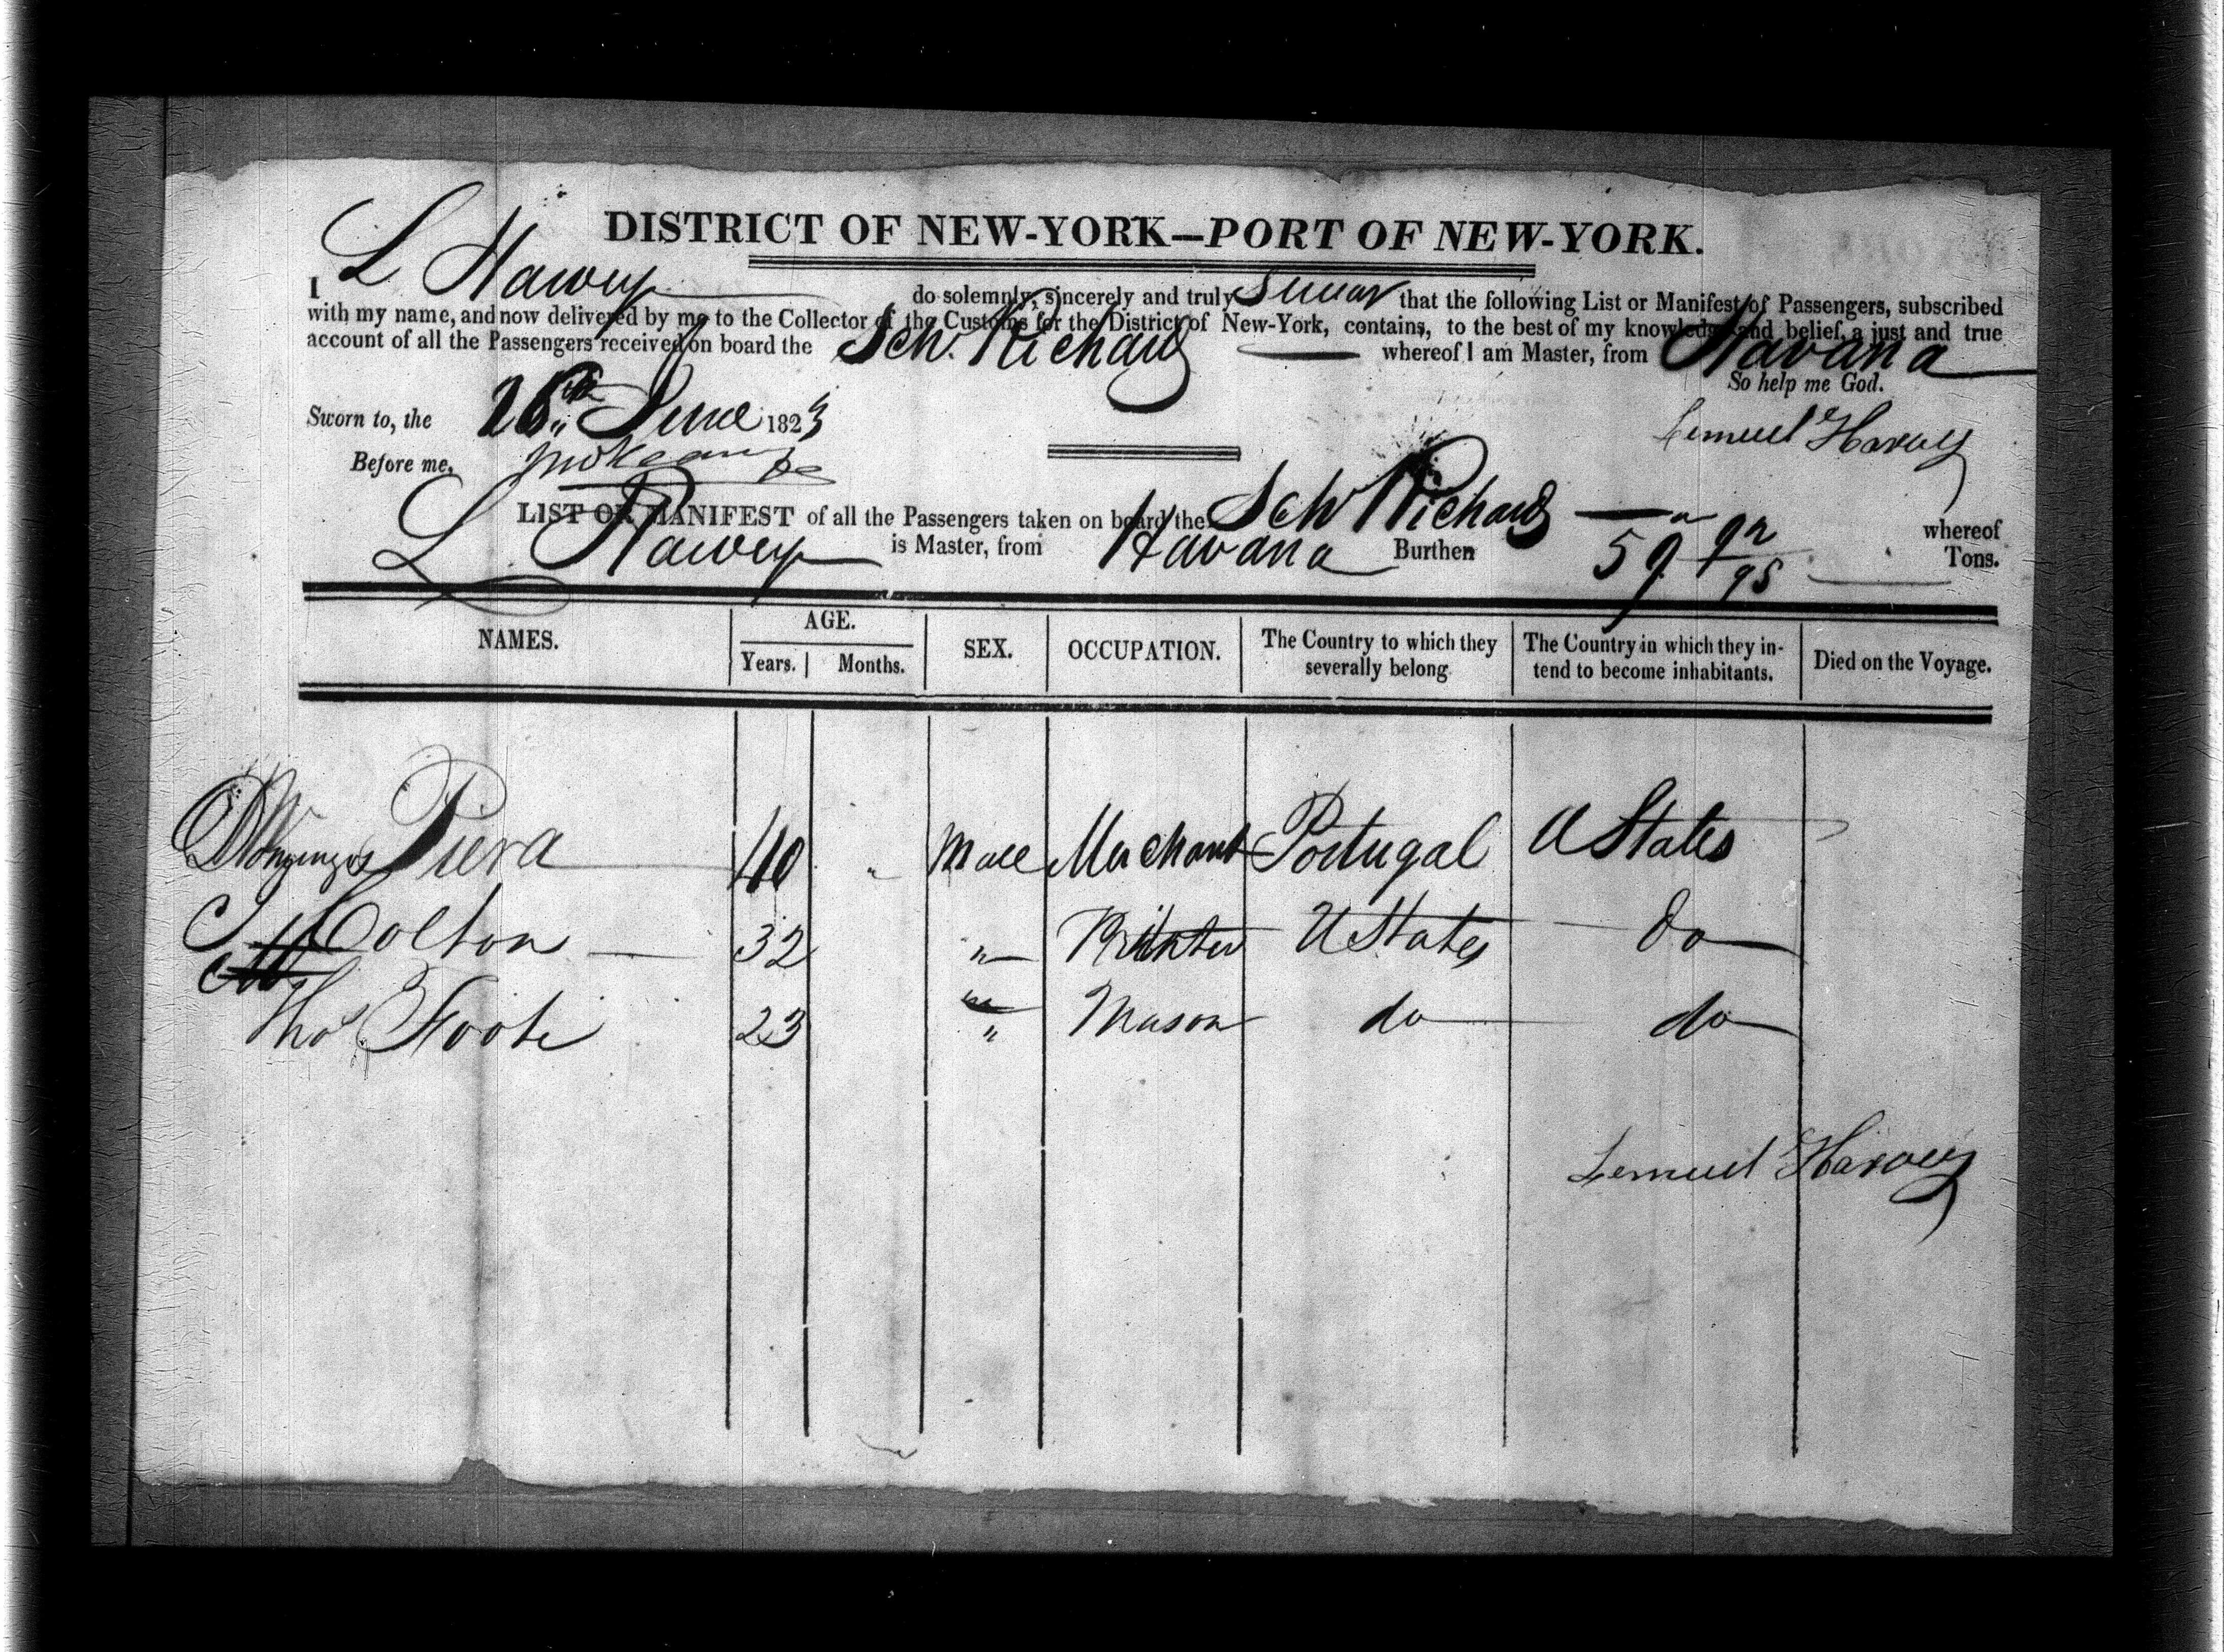 DISTRICT OF NEW-YORK—PORT OF NEW-YORK.
I L Harvey do solemnly, sincerely and truly Swear that the following List or Manifest of Passengers, subscribed
with my name, and now delivered by me to the Collector of the Customs for the District of New-York, contains, to the best of my knowledge and belief, a just and true
account of all the Passengers received on board the Sch. Richard whereof I am Master, from Havana
So help me God.
Sworn to, the 26th June 1823
Lemuel Harvey
Before me,
LIST OR MANIFEST of all the Passengers taken on board the Sch Richard whereof
L Harvey is Master, from Havana Burthen 59 92/95 Tons.
NAMES. AGE. Years. Months. SEX. OCCUPATION. The Country to which they severally belong. The Country in which they intend to become inhabitants. Died on the Voyage.
Domingos Piera 40 " Male Merchant Portugal U States
Colton 32 " Printer U States do
Thos Foote 23 " Mason do do
Lemuel Harvey